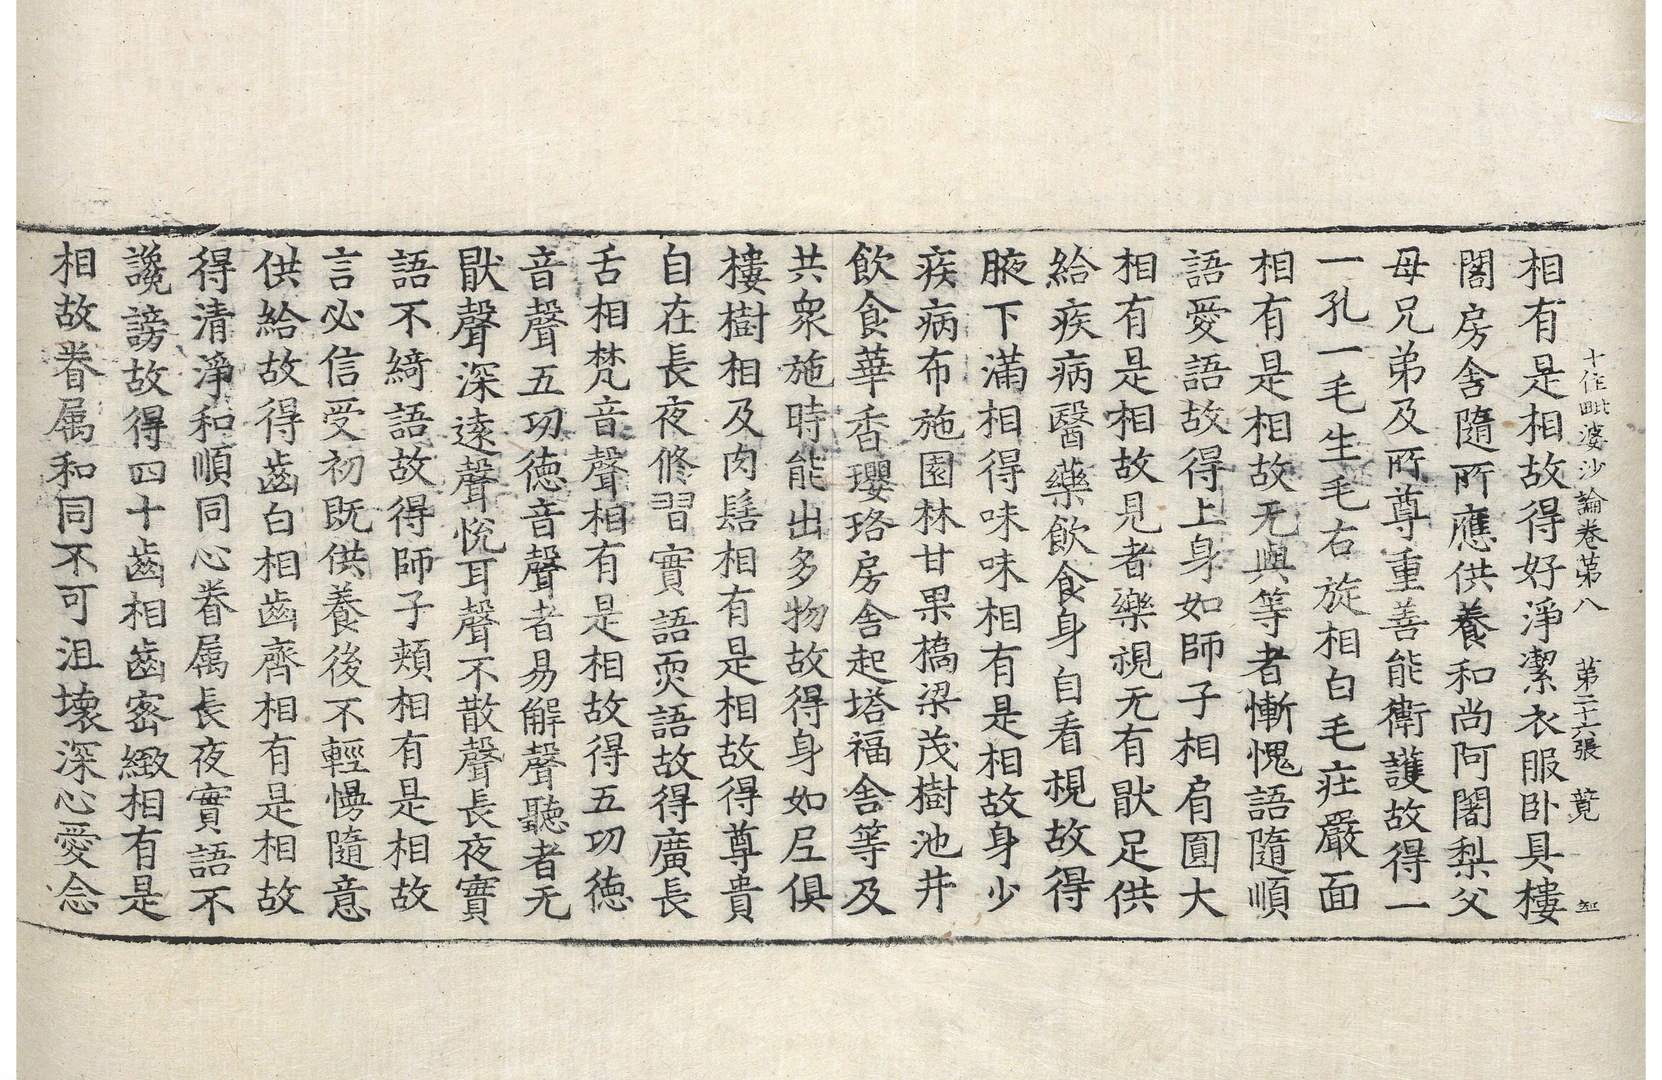 十住毗婆沙論卷第八　第二十六張　䒳
相有是相故得好淨潔衣服卧具樓
閣房舍隨所應供養和尚阿闍梨父
母兄弟及所尊重善能衛護故得一
一孔一毛生毛右旋相白毛疘嚴面
相有是相故无與等者慚愧語隨順
語愛語故得上身如師子相肩圓大
相有是相故見者樂視无有猒足供
給疾病醫藥飲食身自看視故得
腋下滿相得味味相有是相故身少
疾病布施園林甘果橋梁茂樹池井
飲食華香瓔珞房舍起塔福舍等及
共衆施時能出多物故得身如𡰱俱
樓樹相及肉髻相有是相故得尊貴
自在長夜修習實語耎語故得廣長
舌相梵音聲相有是相故得五功德
音聲五功德音聲者易解聲聽者无
猒聲深遠聲悅耳聲不散聲長夜實
語不綺語故得師子頰相有是相故
言必信受初既供養後不輕慢隨意
供給故得齒白相齒齊相有是相故
得清淨和順同心眷属長夜實語不
讒謗故得四十齒相齒密緻相有是
相故眷属和同不可沮壞深心愛念